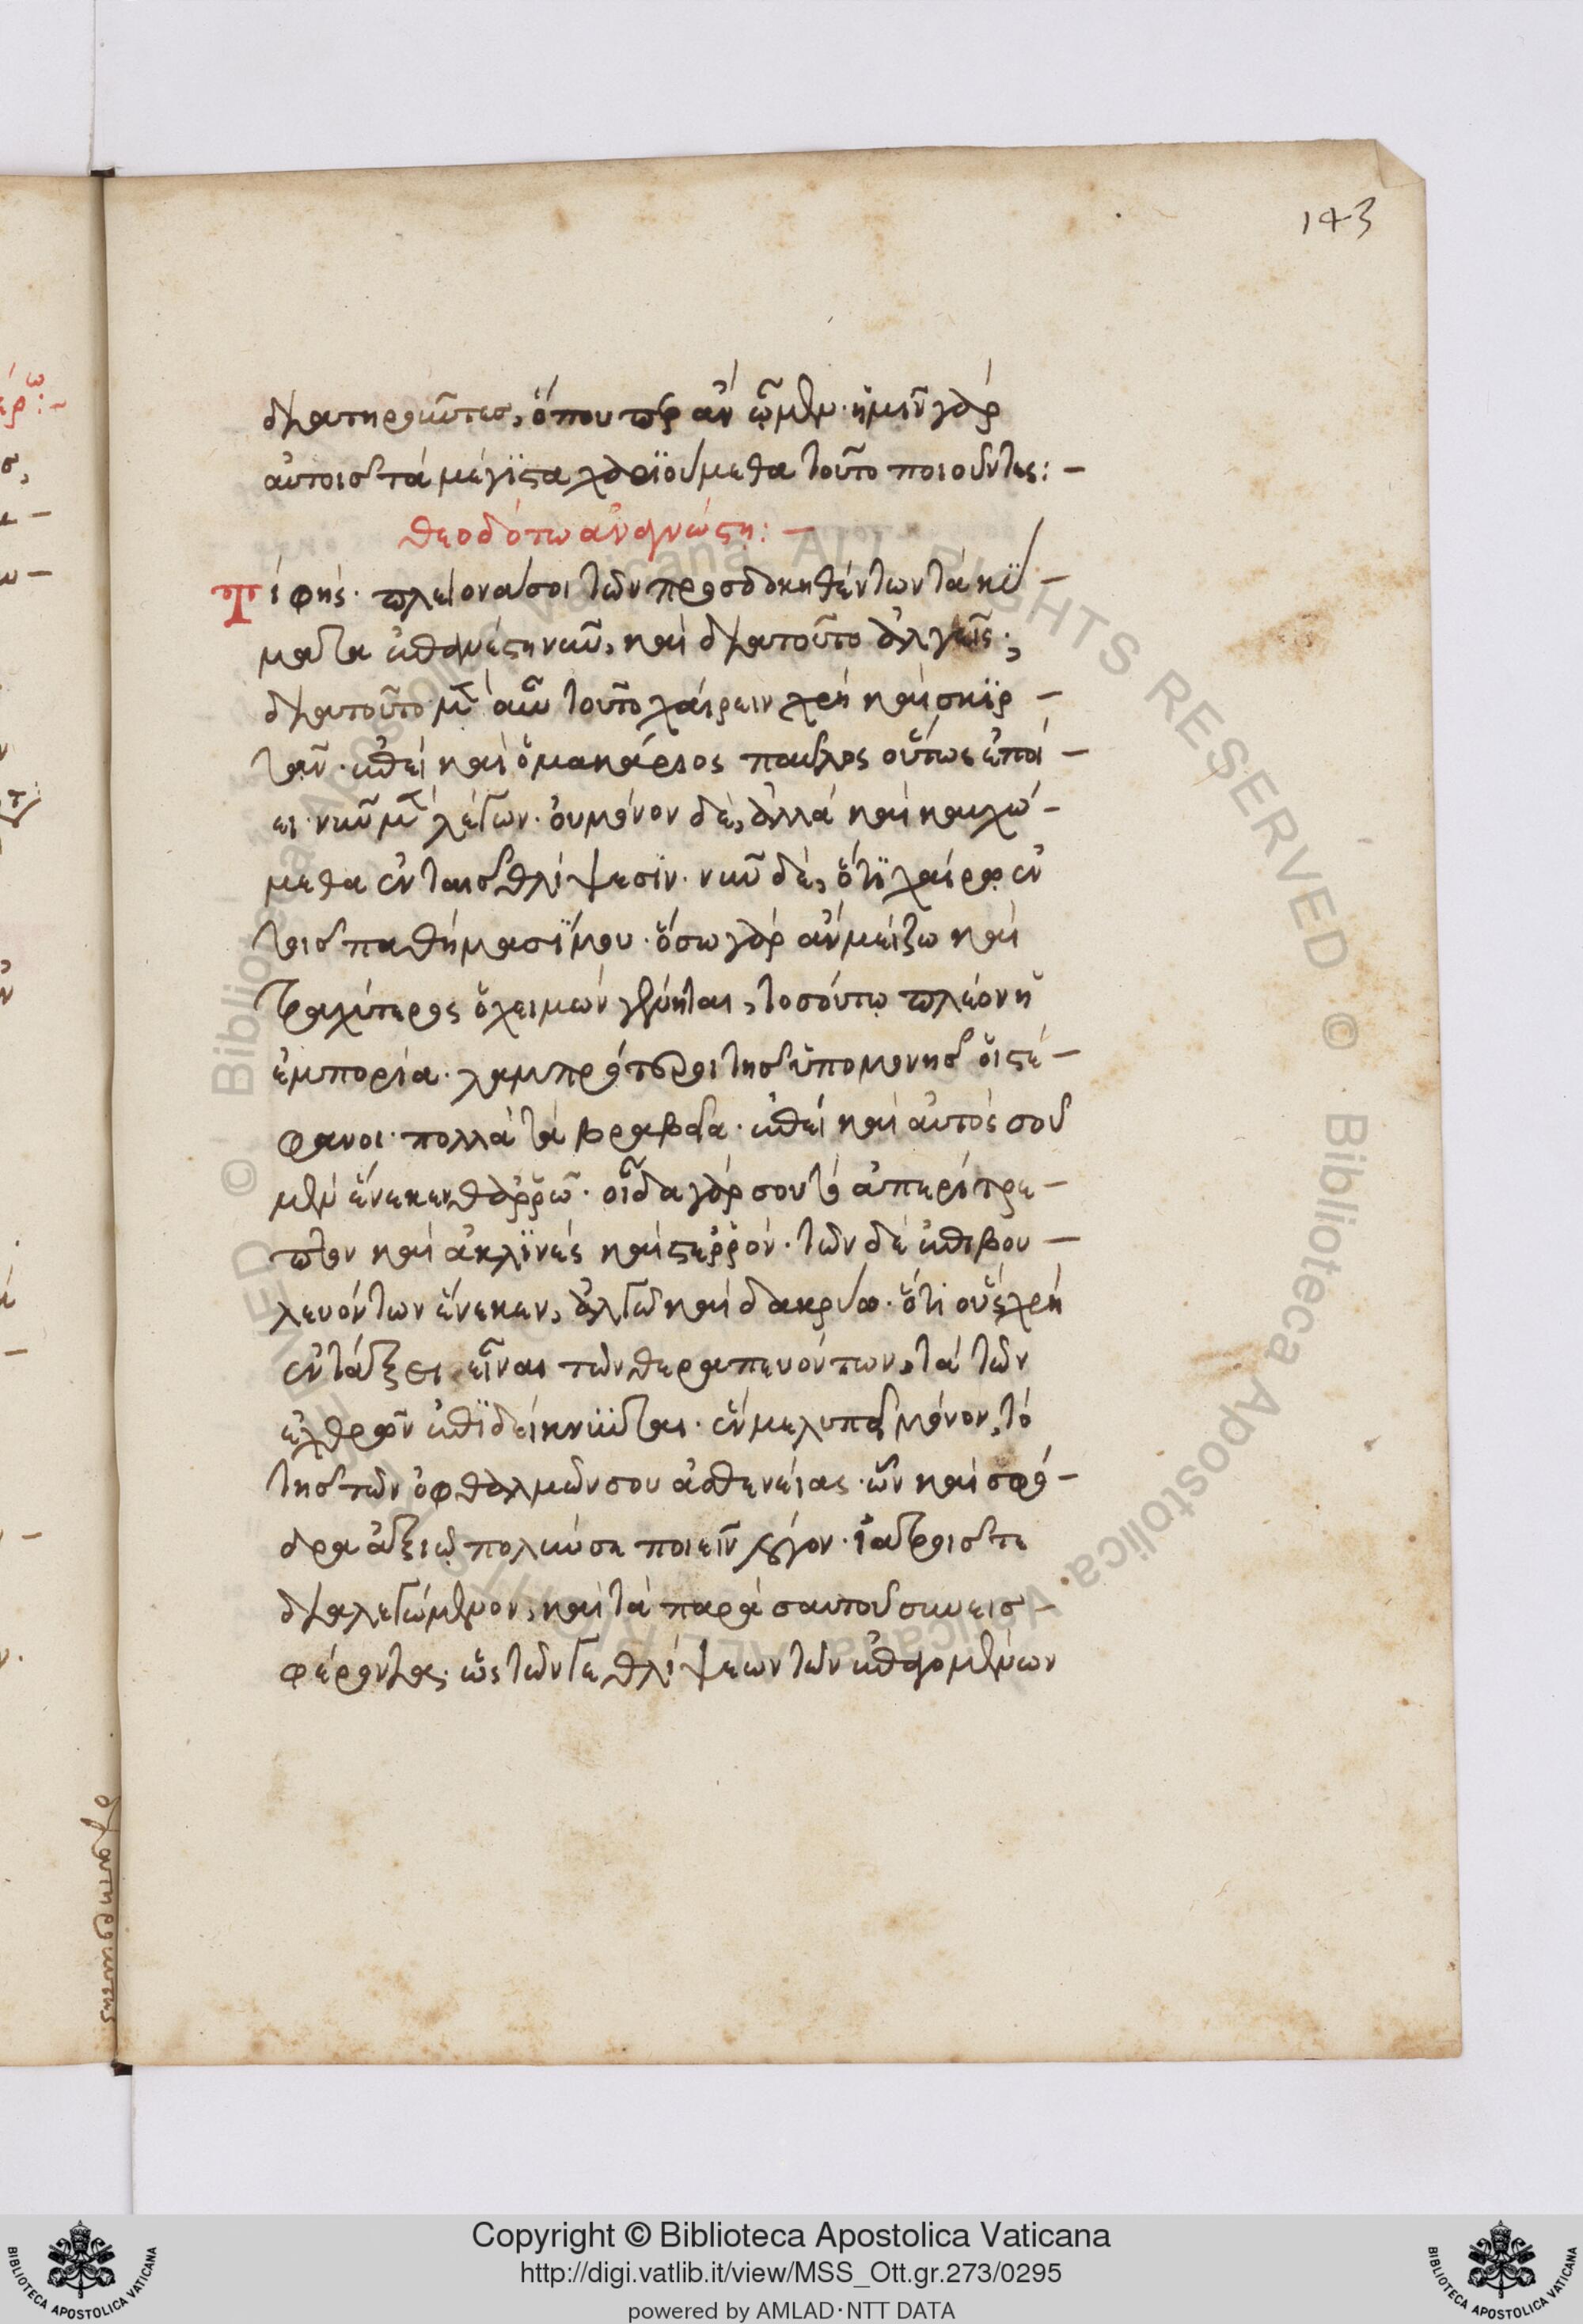 143
διατηροῦντες, ὅπουπερ ἂν ὦμεν· ἡμῖν γὰρ
αὐτοῖς τὰ μέγιστα χαριούμεθα τοῦτο ποιοῦντες: –
θεοδότω ἀναγνώστη: –
Τί φής· πλείονα σοι τῶν προσδοκηθέντων τὰ κύ –
ματα ἐπανέστη νῦν, καὶ διατοῦτο ἀλγεῖς;
διατοῦτο μὲν οὖν τοῦτο χαίρειν χρὴ καὶ σκιρ –
τᾶν· ἐπεὶ καὶ ὁ μακάριος παῦλος οὕτως ἐποί –
ει· νῦν μὲν λέγων· οὐ μόνον δὲ, ἀλλὰ καὶ καυχώ –
μεθα ἐν ταῖς θλίψεσιν· νῦν δὲ, ὅτι χαίρω ἐν
τοῖς παθήμασί μου· ὅσω γὰρ ἂν μείζω καὶ
τραχύτερος ὁ χειμὼν γένηται, τοσούτω πλέον ἡ
ἐμπορία· λαμπρότεροι τῆς ὑπομονῆς οἱ στέ –
φανοι· πολλὰ τὰ βραβεῖα· ἐπεὶ καὶ αὐτὸς σοῦ
μὲν ἕνεκεν θαρρῶ· οἶδα γάρ σου τὸ ἀπερίτρε –
πτον καὶ ἀκλινὲς καὶ στερρόν· τῶν δὲ ἐπιβου –
λευόντων ἕνεκεν, ἀλγῶ καὶ δακρύω· ὅτι οὓς χρὴ
ἐν τάξει εἶναι τῶν θεραπευόντων, τὰ τῶν
ἐχθρῶν ἐπιδείκνυνται· ἕν με λυπεῖ μόνον, τὸ
τῆς τῶν ὀφθαλμῶν σου ἀσθενείας· ὧν καὶ σφό –
δρα ἀξιῶ πολλύν σε ποιεῖν λόγον· ἰατροῖς τε
διαλεγόμενον, καὶ τὰ παρὰ σαυτοῦ συνεισ –
φέροντα· ὡς τῶν γε θλίψεων τῶν ἐπαγομένων